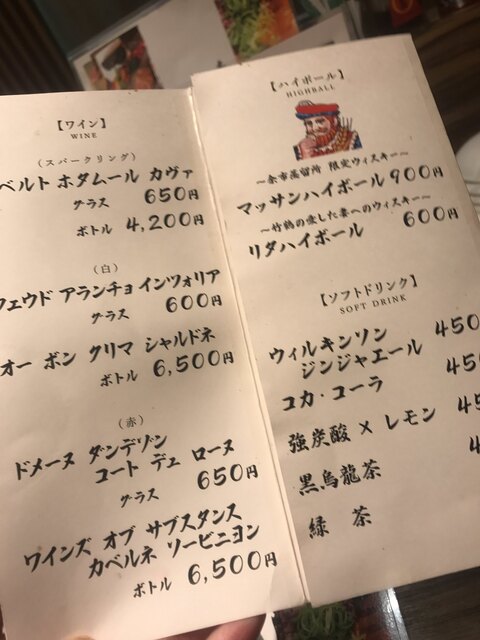 【ワイン】
WINE
(スパークリング)
ベルト ホダムール カヴァ
グラス 650円
ボトル 4,200円
(白)
フェウド アランチョ インツォリア
グラス 600円
オー ボン クリマ シャルドネ
ボトル 6,500円
(赤)
ドメーヌ ダンデゾン
コート デュ ローヌ
グラス 650円
ワインズ オブ サブスタンス
カベルネ ソービニヨン
ボトル 6,500円
【ハイボール】
HIGHBALL
〜余市蒸留所 限定ウィスキー〜
マッサンハイボール 900円
〜竹鶴の愛した妻へのウィスキー〜
リタハイボール 600円
【ソフトドリンク】
SOFT DRINK
ウィルキンソン
ジンジャエール 450
コカ・コーラ 450
強炭酸 × レモン 45
黒烏龍茶 4
緑 茶